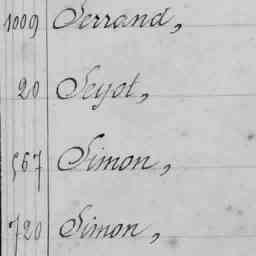 1009 Serrand,
20 Seyot,
567 Simon,
720 Simon,